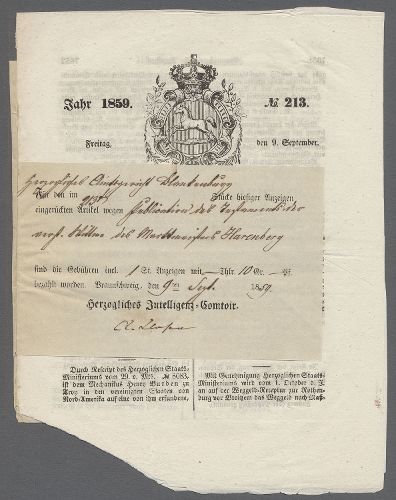 Jahr 1859.
№ 213.
Freitag,
den 9. September.
Herzogliches Amtsgericht Blankenburg
Für den im 213 Stücke hiesiger Anzeigen
eingerückten Artikel wegen Publication des Testaments der
verst. Wittwe des Harenberg
sind die Gebühren incl. 1 St. Anzeigen mit — Thlr. 10 Gr. — Pf.
bezahlt worden. Braunschweig, den 9ten Sept. 1859.
Herzogliches Intelligenz-Comtoir.
Durch Rescript des Herzoglichen Staats-
Ministeriums vom 29. v. Mts. № 8083.
ist dem Mechanikus Henry Burden zu
Troy in den vereinigten Staaten von
Nord-Amerika auf eine von ihm erfundene,
Mit Genehmigung Herzoglichen Staats-
Ministeriums wird vom 1. October d. J.
an auf der Weggeld-Receptur zur Rothen-
burg vor Vorsfelde das Weggeld nach Maß-